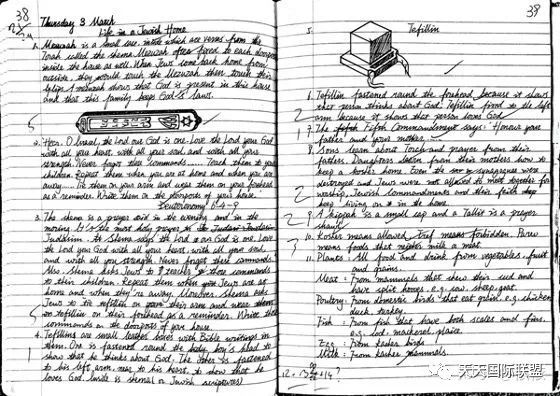 38
Thursday 3 March
Life in a Jewish Home
1. Mezuzah is a small case inside which are verses from the
Torah called the shema. Mezuzah often fixed to each doorpost
inside the house as well. When Jews come back home from
outside, they would touch the Mezuzah then touch their
lips. A mezuzah shows that God is present in this house
and that this family keeps God's laws.
2. Hear, O Israel, the Lord our God is one. Love the Lord your God
with all your heart, with all your soul, and with all your
strength. Never forget these commands..... Teach them to your
children. Repeat them when you are at home and when you are
away..... Tie them on your arm and wear them on your foreheads
as a reminder. Write them on the doorposts of your house.
Deuteronomy 6:4-9
3. The shema is a prayer said in the evening and in the
moring. It's the most holy prayer in
Judaism. The Shema says the Lord our God is one. Love
the Lord you God with all your heart, with all your soul,
and with all you strength. Never forget these commands.
Also, shema asks Jews to teach these commands
to their children. Repeat them when you Jews are at
home and when they're away. Moreover, Shema asks
Jews to tie tefillin on their arm and wear them
on their forehead as a reminder. Write the
commands on the doorposts of your house.
4. Tefillins are small leather boxes with Bible writings in
them. One is fastened round the boy's head to
show that he thinks about God. The other is fastened
to his left arm, near to his heart, to show that he
loves God. (inside is shema) or Jewish scriptures)
39
5. Tefillin
Tefillin fastened round the forehead because it shows
that person thinks about God. Tefillin fixed to the left
arm because it shows that person loves God.
The Fifth Commandment says: Honour your
father and your mother.
Sons learn about Torah and prayer from their
fathers. Daughters learn from their mothers how to
keep a kosher home. Even the synagogues were
destroyed and Jews were not allowed to meet together for
worship, Jewish Commandments and their faith
keep living on in the home.
9. A kippah is a small cap and a Tallit is a prayer
shawl.
10. Kosher means allowed, Tref means forbidden. Parev
means foods that neither milk or meat.
11. Plants: All food and drink from vegetables, fruit
and grains.
Meat: From mammals that chew their cud and
have split hooves e.g. cow, sheep, goat.
Poultry: From domestic birds that eat grain e.g. chicken
duck, turkey.
Fish: From fish that have both scales and fins.
e.g. cod, mackerel, plaice.
Egg: From kosher birds
Milk: From kosher mammals.
天天国际联盟